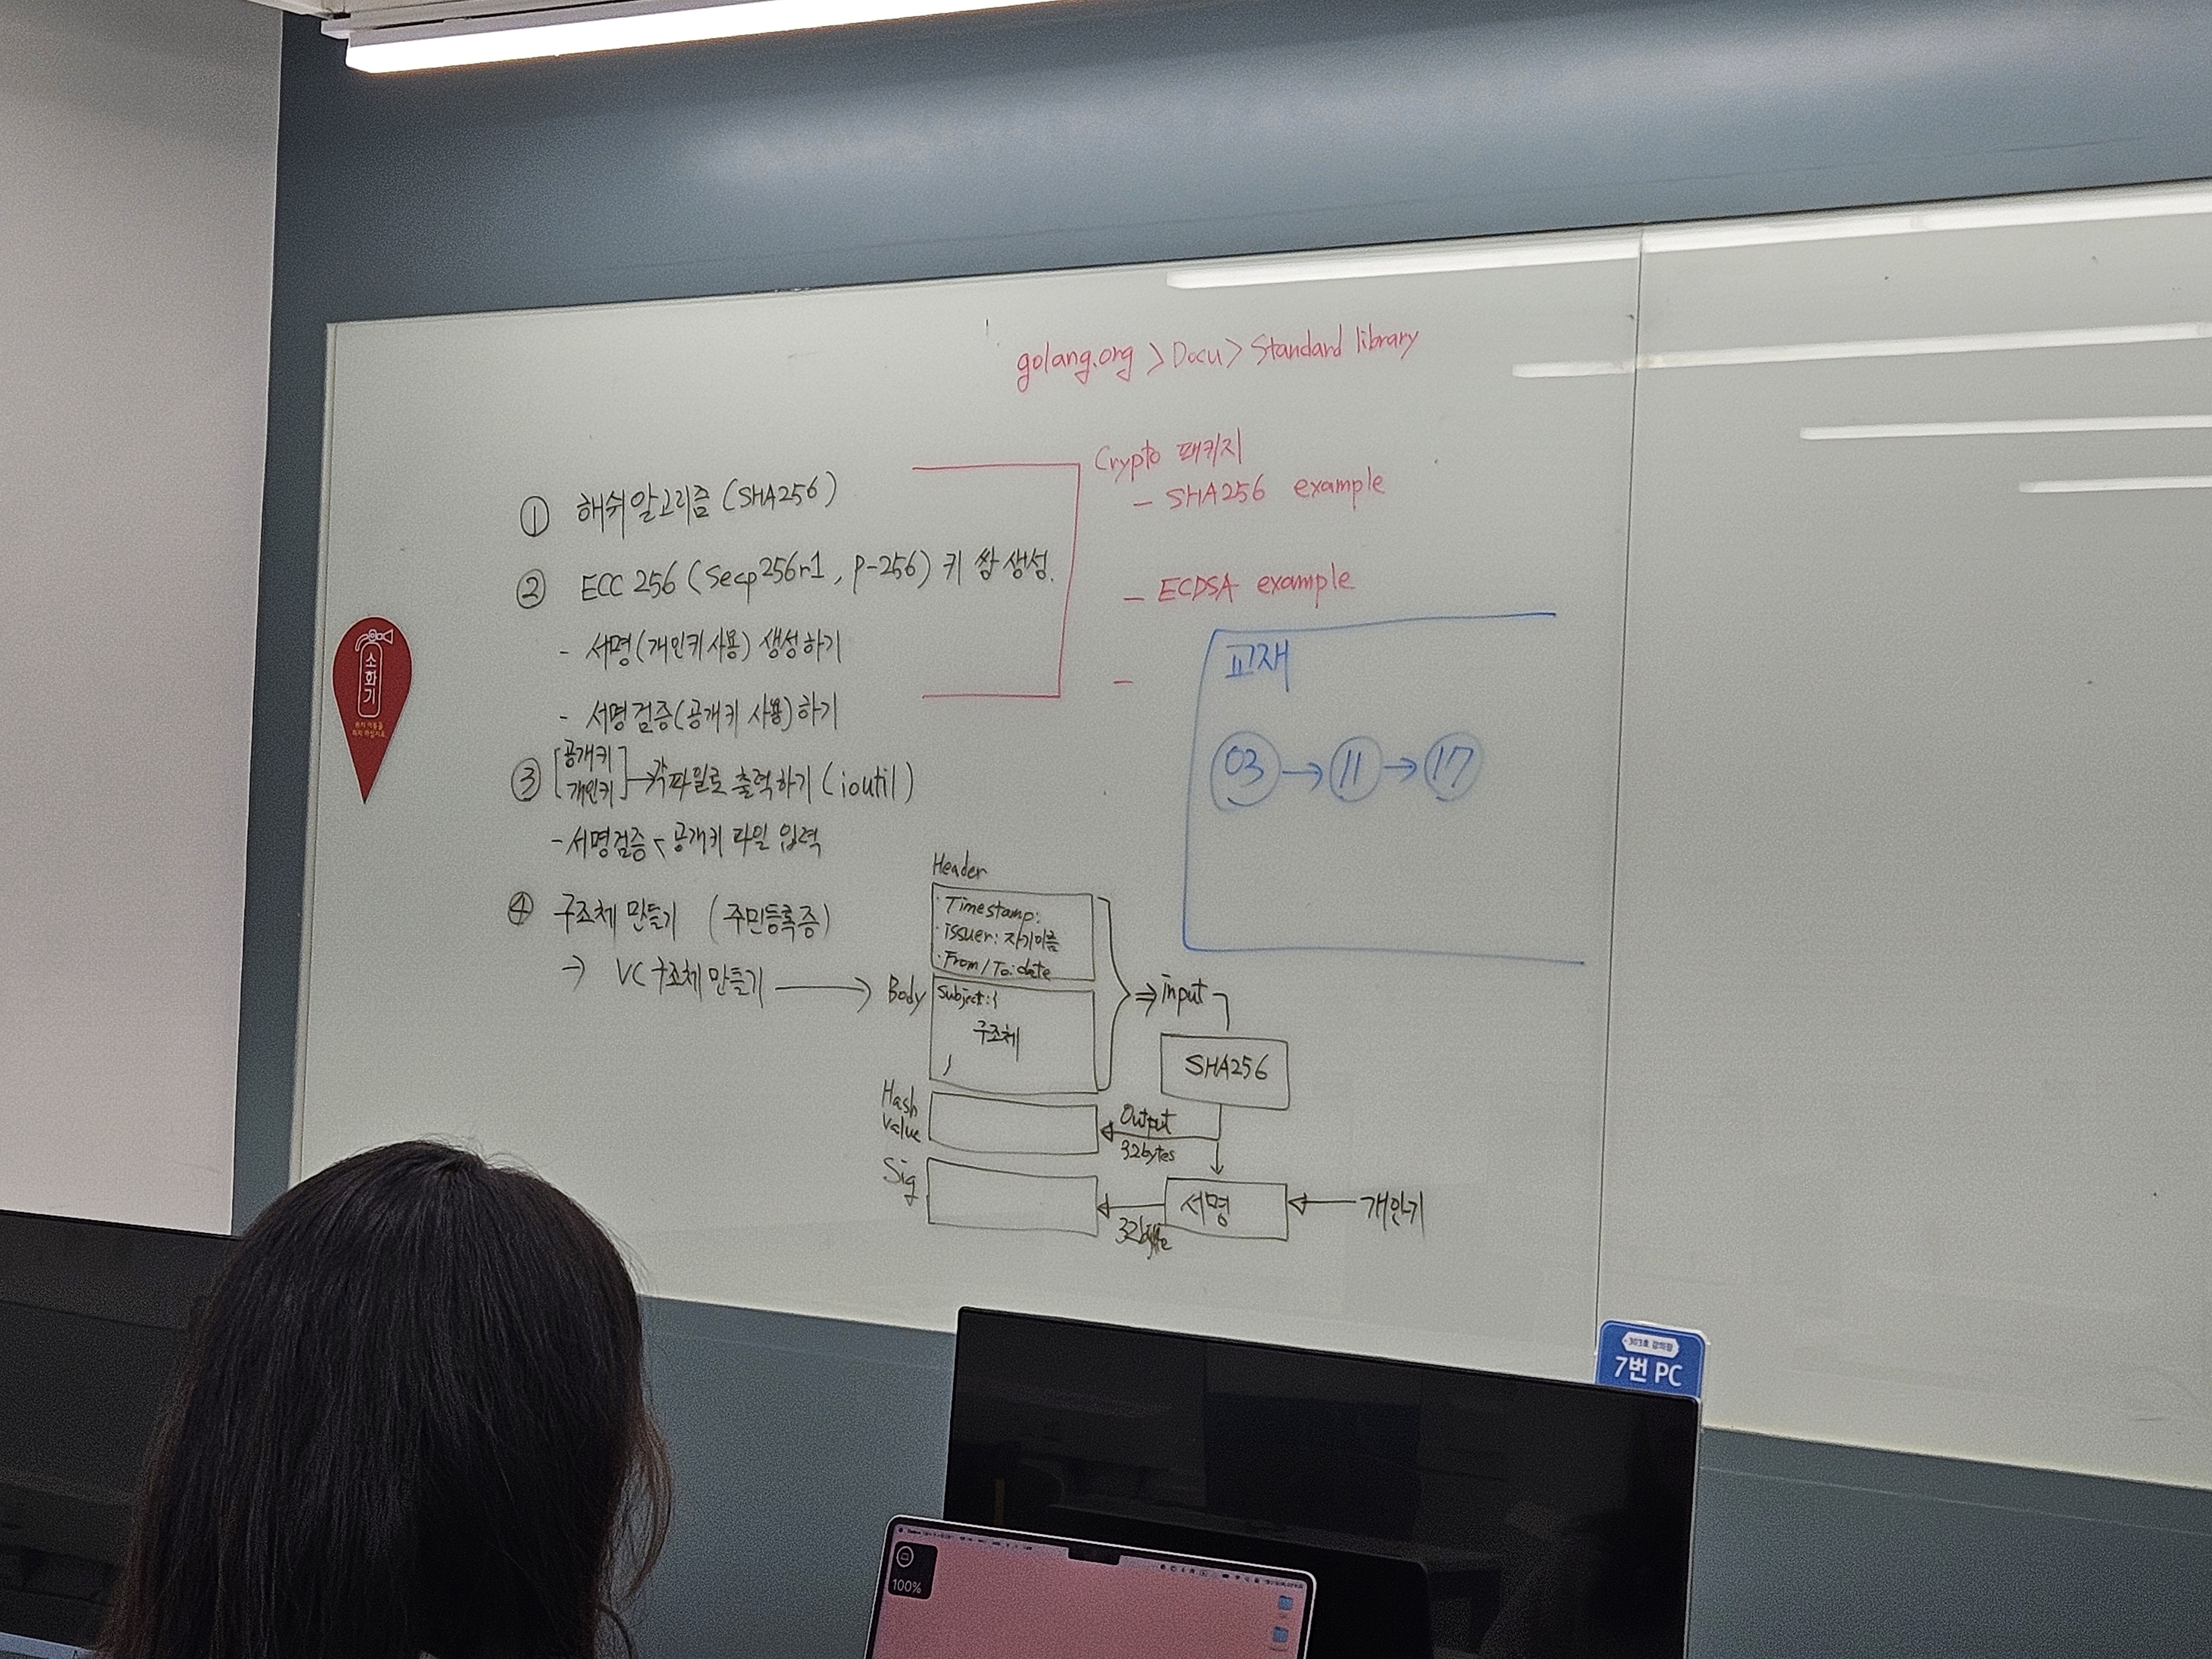 golang.org > Docu > Standard library
Crypto 패키지
- SHA256 example
- ECDSA example
-
① 해쉬알고리즘 (SHA256)
② ECC 256 (Secp256r1, P-256) 키 쌍 생성.
- 서명(개인키 사용) 생성하기
- 서명검증(공개키 사용)하기
③ [공개키
개인키] → 각 파일로 출력하기 (ioutil)
- 서명검증 < 공개키 파일 입력
④ 구조체 만들기 (주민등록증)
→ VC 구조체 만들기 →
교재
03 → 11 → 17
Header
· Timestamp:
· issuer: 자기이름
· From/To: date
Body
Subject: {
구조체
}
⇒ input
SHA256
Hash
Value
Output
32bytes
Sig
서명
개인키
소
화
기
303호 강의장
7번 PC
100%